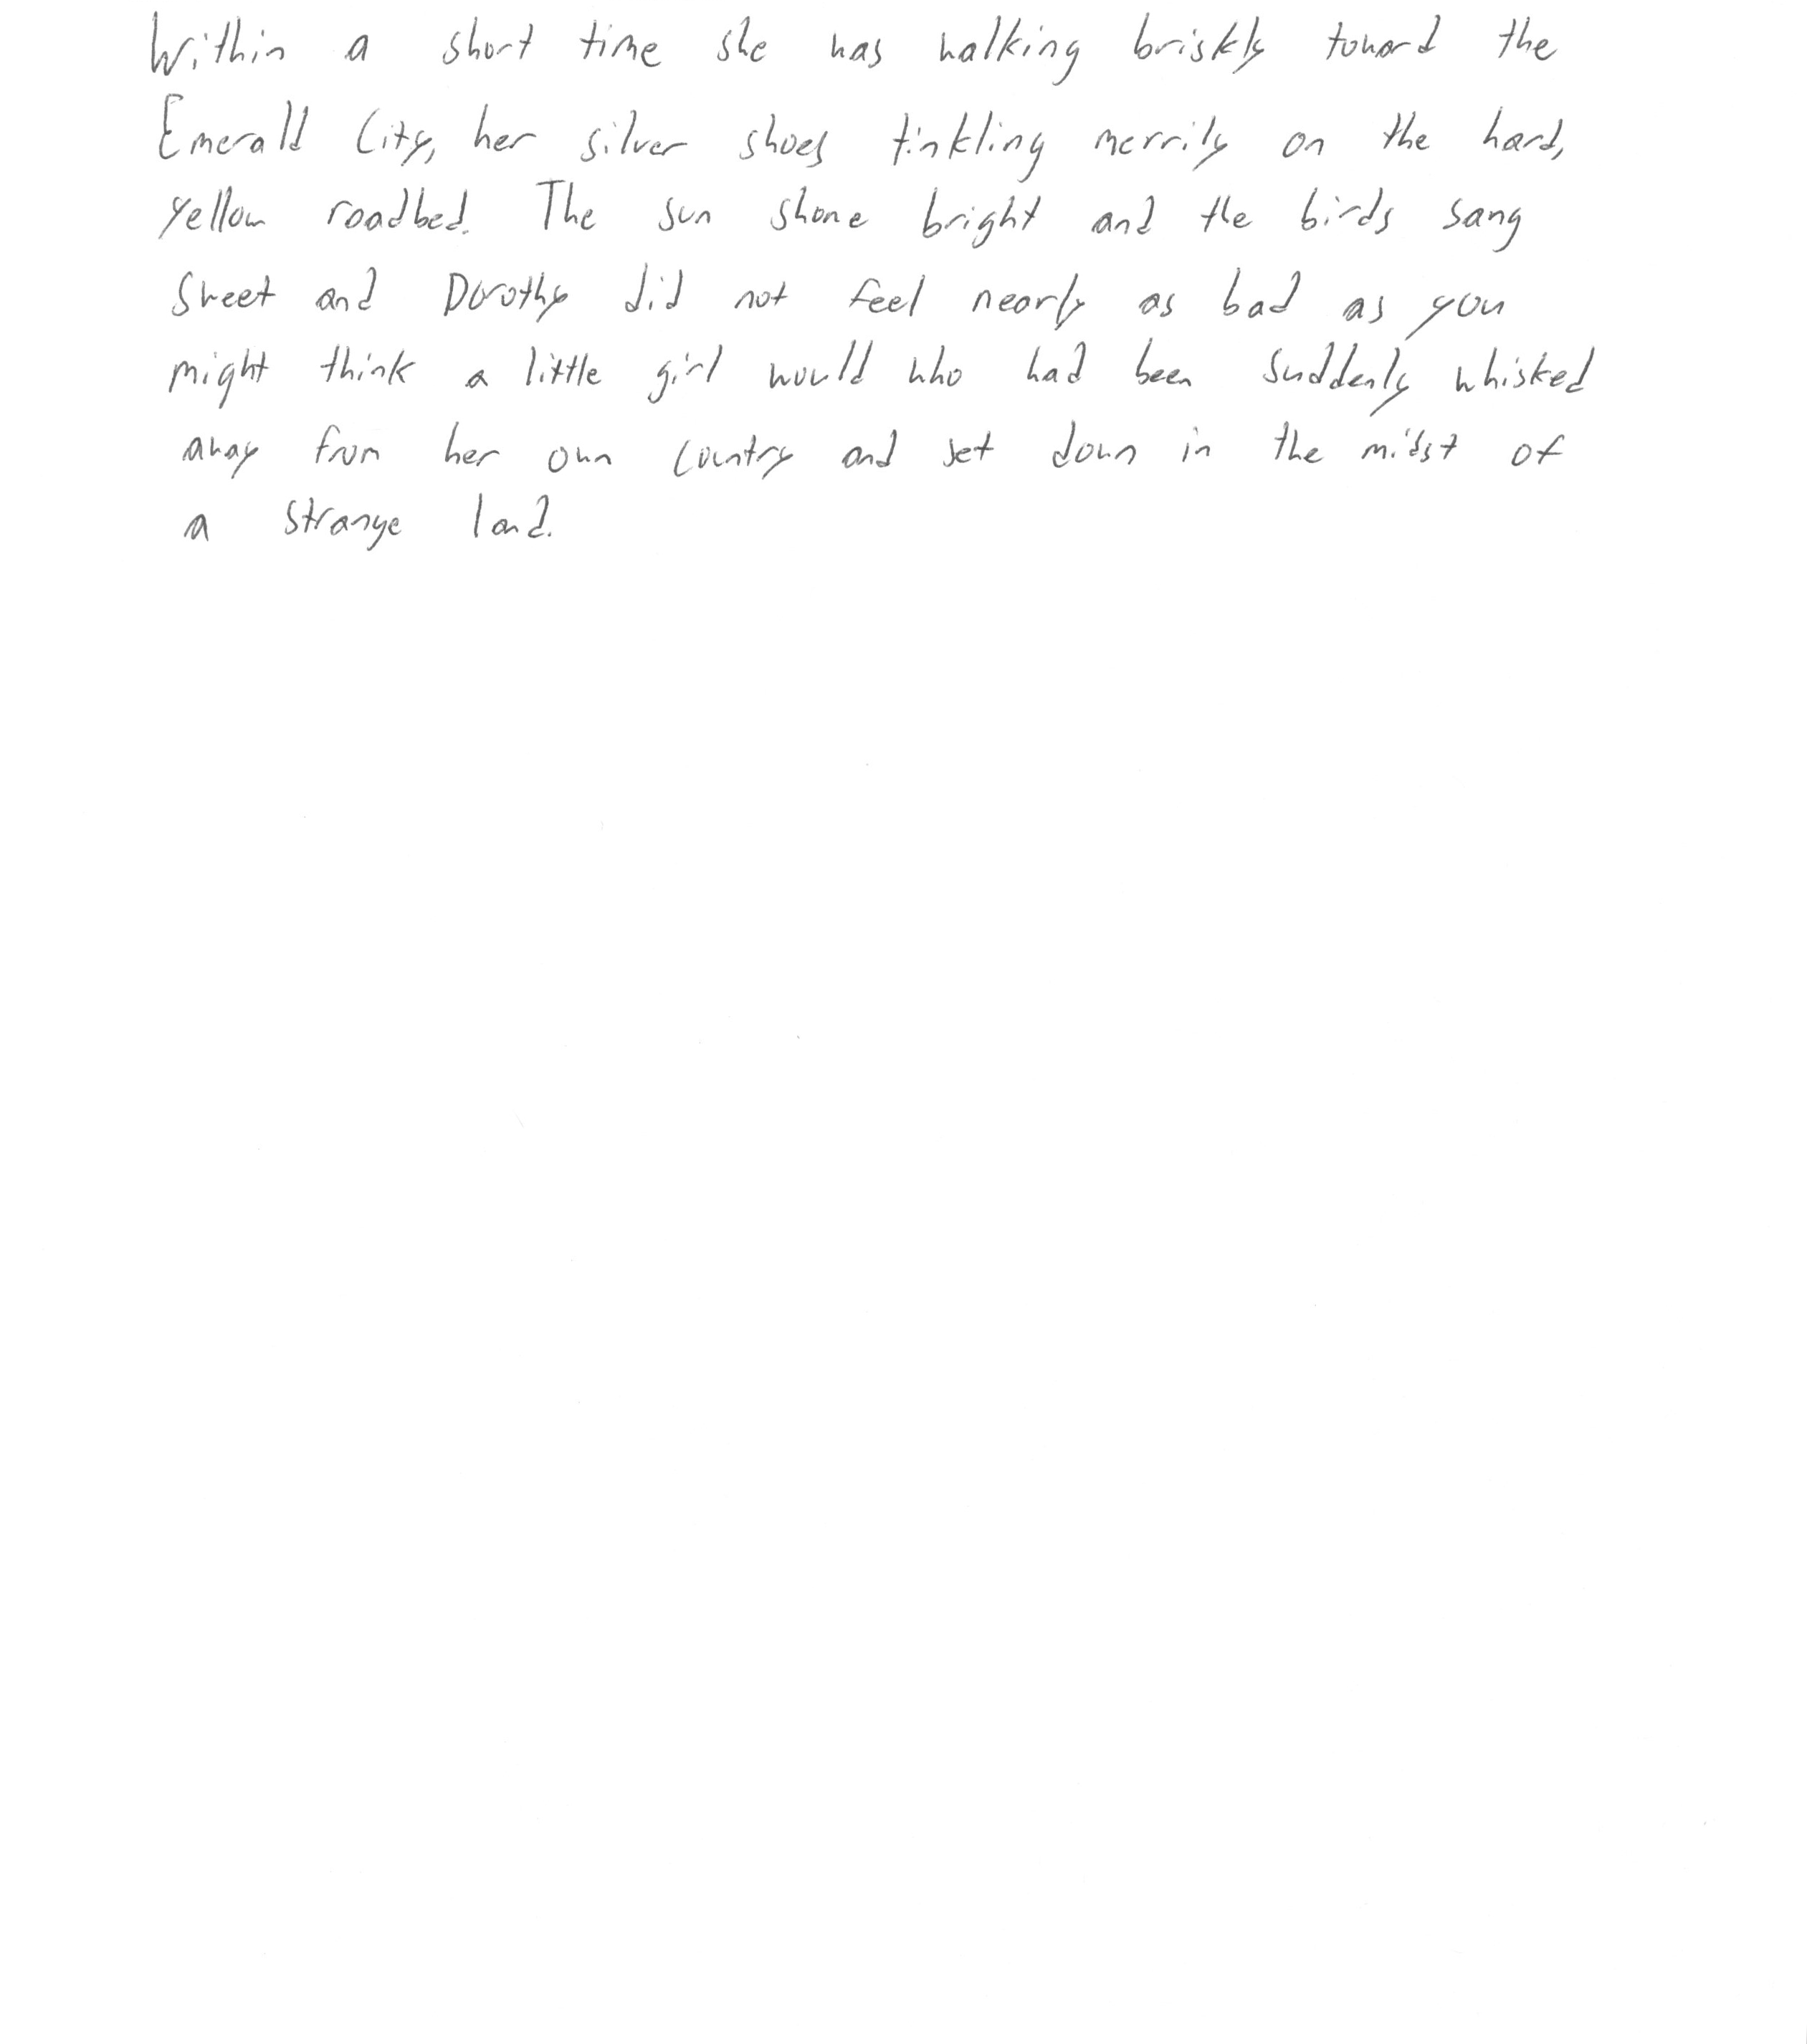 Within a short time she was walking briskly toward the
Emerald City, her silver shoes tinkling merrily on the hard,
yellow roadbed. The sun shone bright and the birds sang
sweet and Dorothy did not feel nearly as bad as you
might think a little girl would who had been suddenly whisked
away from her own country and set down in the midst of
a strange land.